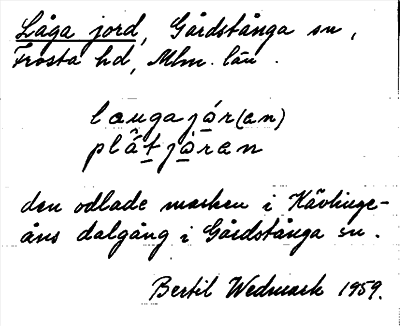 Låga jord, Gårdstånga sn,
Frosta hd, Mlm. län.
laugajår(an)
plåtjåran
den odlade marken i Kävlinge-
åns dalgång i Gårdstånga sn.
Bertil Wedmark 1959.